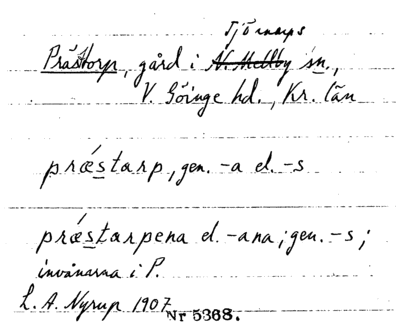 Tjörnarps
Prästorp, gård i N. Mellby sn.,
V. Göinge hd., Kr. län
prǽstarp, gen. -a el. -s
prǽstarpena el. -ana; gen. -s;
invånarna i P.
L. A. Nyrup 1907
Nr 5368.